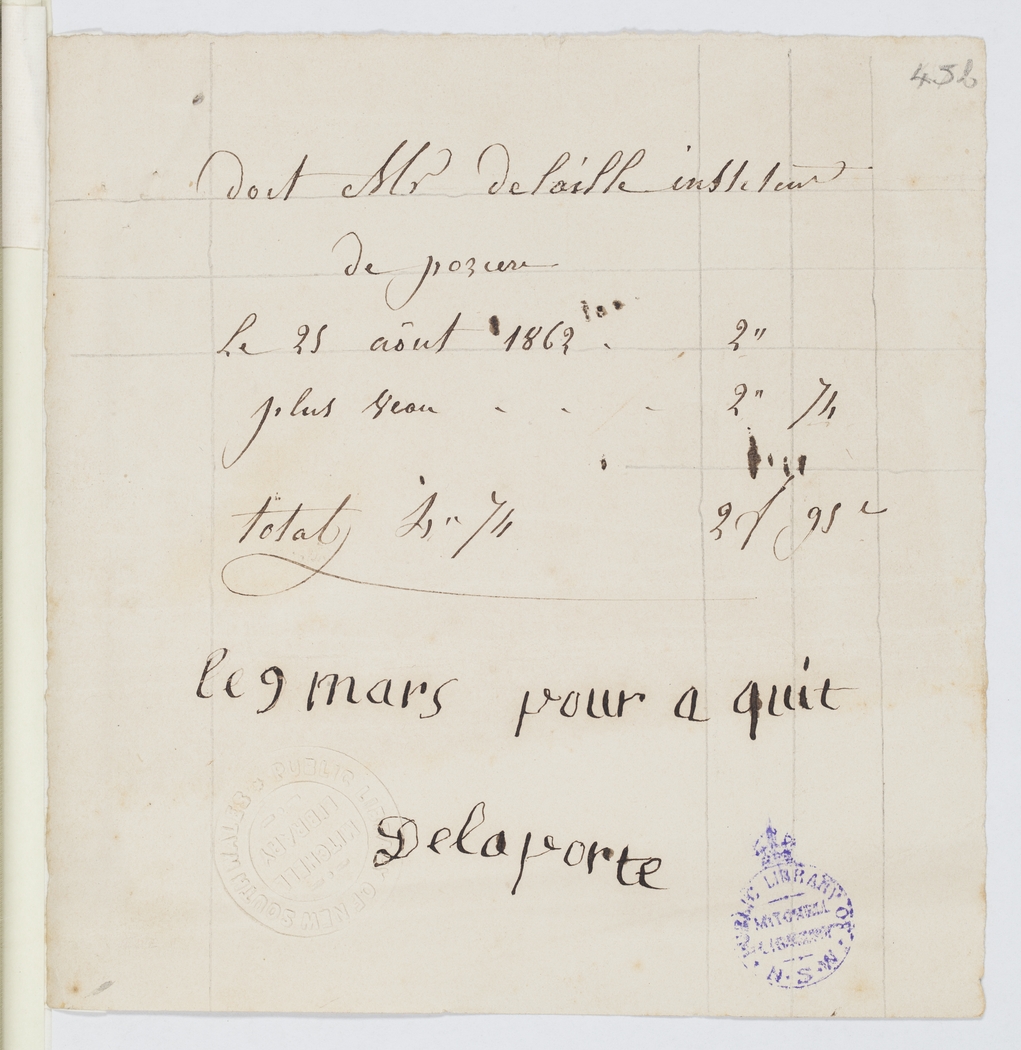 43b
doit Mr Delaille instituteur
de poziere
le 25 août 1862 . 2"
plus veau - - - 2" 74
total 4" 74 2f 95c
le 9 mars pour a quit
Delaporte
PUBLIC LIBRARY OF NEW SOUTH WALES
MITCHELL
LIBRARY
PUBLIC LIBRARY OF N.S.W.
MITCHELL
LIBRARY